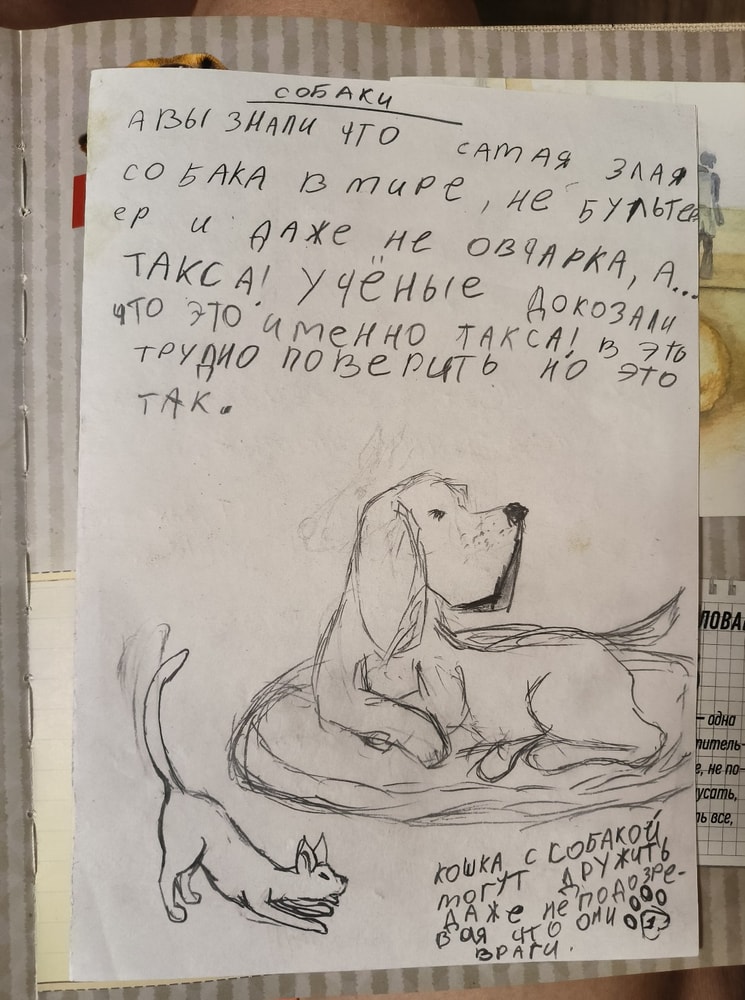 СОБАКИ
А ВЫ ЗНАЛИ ЧТО САМАЯ ЗЛАЯ
СОБАКА В МИРЕ, НЕ БУЛЬТЕР
ЕР И ДАЖЕ НЕ ОВЧАРКА, А...
ТАКСА! УЧЁНЫЕ ДОКОЗАЛИ
ЧТО ЭТО ИМЕННО ТАКСА! В ЭТО
ТРУДНО ПОВЕРИТЬ НО ЭТО
ТАК.
КОШКА С СОБАКОЙ
МОГУТ ДРУЖИТЬ
ДАЖЕ НЕ ПОДОЗРЕ-
ВАЯ ЧТО ОНИ
ВРАГИ.
1
ЛОВА
– одна
титель-
е, не по-
усать,
ть все,